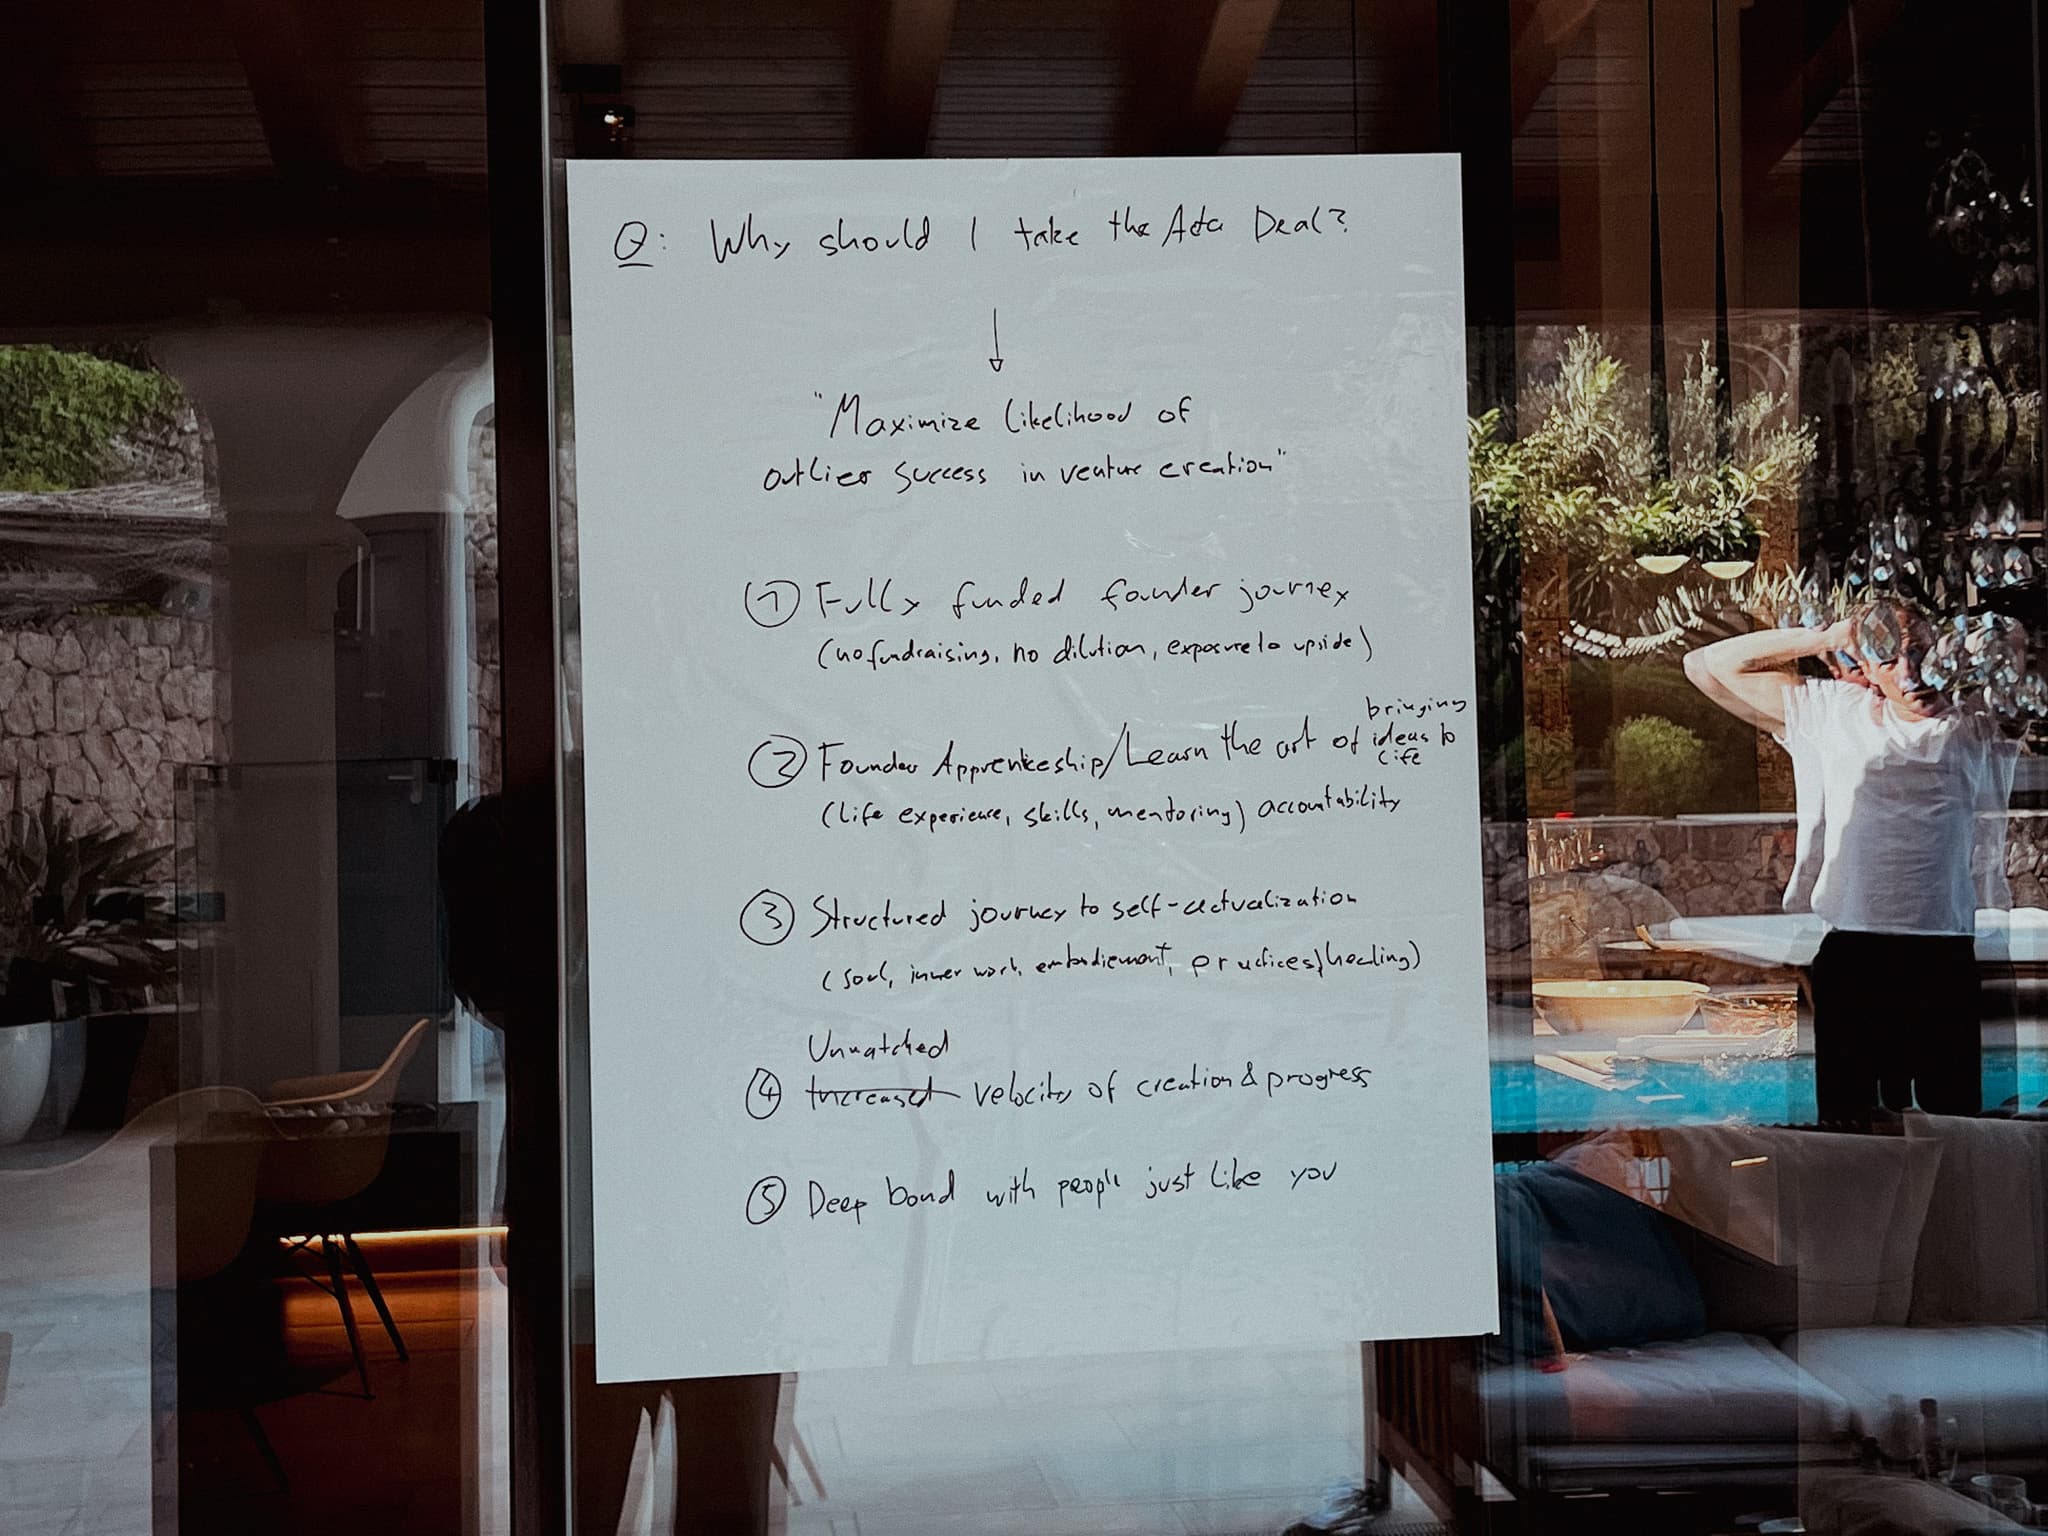 Q: Why should I take the Ada Deal?
"Maximize likelihood of
outlier success in venture creation"
① Fully funded founder journey
(no fundraising, no dilution, exposure to upside)
② Founder Apprenticeship/Learn the art of bringing ideas to life
(life experience, skills, mentoring) accountability
③ Structured journey to self-actualization
(soul, inner work, embodiement, practices/healing)
Unmatched
④ Increased velocity of creation & progress
⑤ Deep bond with people just like you